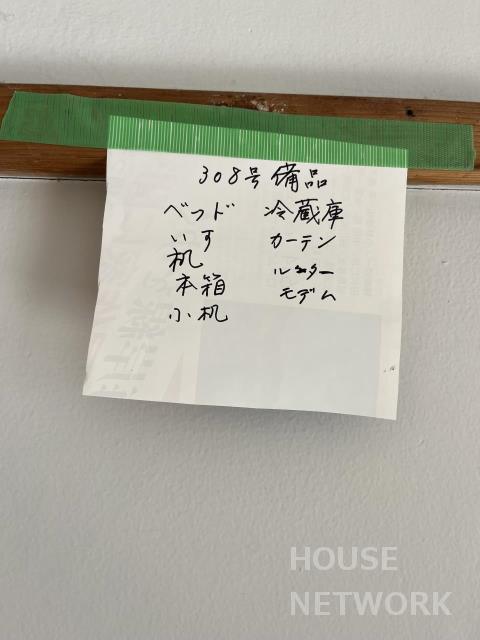 308号備品
ベッド
いす
机
本箱
小机
冷蔵庫
カーテン
ルーター
モデム
HOUSE
NETWORK